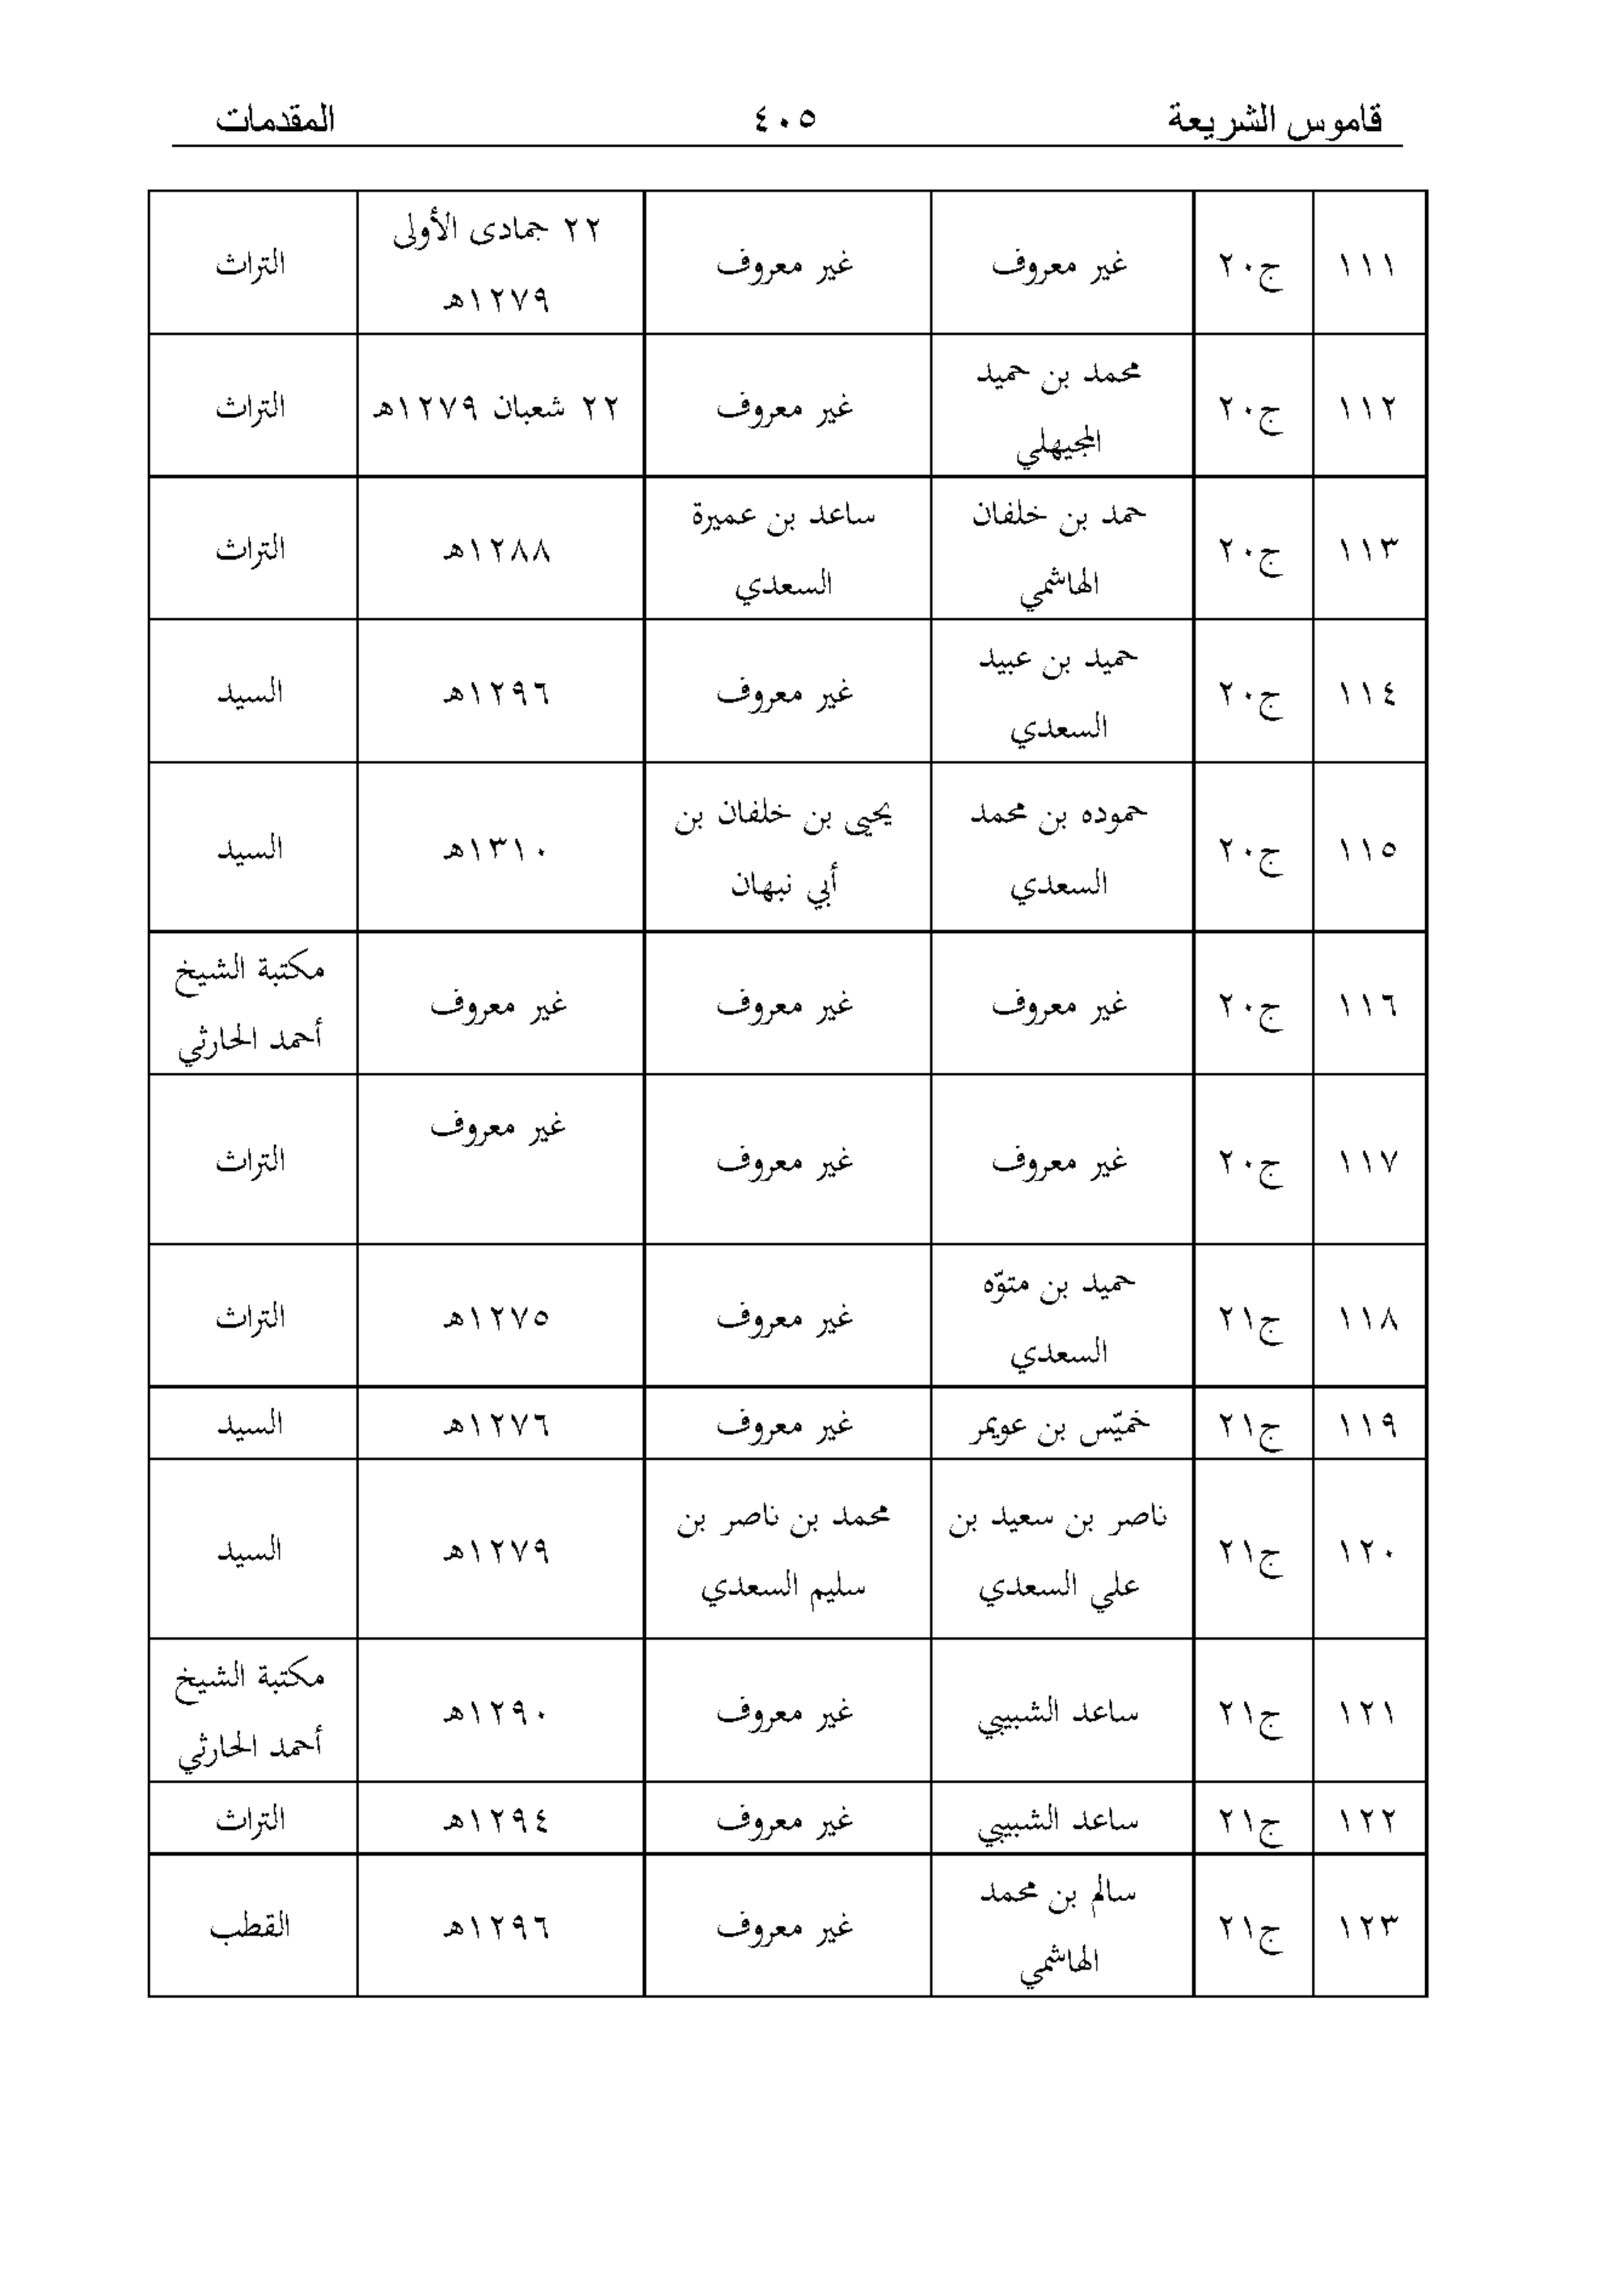 قاموس الشريعة ٤٠٥ المقدمات
١١١ ج٢٠ غير معروف غير معروف ٢٢ جمادى الأولى
١٢٧٩هـ التراث
١١٢ ج٢٠ محمد بن حميد
المجيهلي غير معروف ٢٢ شعبان ١٢٧٩هـ التراث
١١٣ ج٢٠ حمد بن خلفان
الهاشمي ساعد بن عميرة
السعدي ١٢٨٨هـ التراث
١١٤ ج٢٠ حميد بن عبيد
السعدي غير معروف ١٢٩٦هـ السيد
١١٥ ج٢٠ حموده بن محمد
السعدي يحيى بن خلفان بن
أبي نبهان ١٣١٠هـ السيد
١١٦ ج٢٠ غير معروف غير معروف غير معروف مكتبة الشيخ
أحمد الحارثي
١١٧ ج٢٠ غير معروف غير معروف غير معروف التراث
١١٨ ج٢١ حميد بن متوّه
السعدي غير معروف ١٢٧٥هـ التراث
١١٩ ج٢١ خميّس بن عويمر غير معروف ١٢٧٦هـ السيد
١٢٠ ج٢١ ناصر بن سعيد بن
علي السعدي محمد بن ناصر بن
سليم السعدي ١٢٧٩هـ السيد
١٢١ ج٢١ ساعد الشبيبي غير معروف ١٢٩٠هـ مكتبة الشيخ
أحمد الحارثي
١٢٢ ج٢١ ساعد الشبيبي غير معروف ١٢٩٤هـ التراث
١٢٣ ج٢١ سالم بن محمد
الهاشمي غير معروف ١٢٩٦هـ القطب